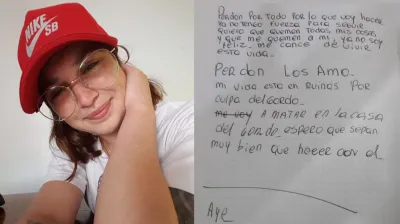 NIKE
SB
PERDON POR TODO POR LO QUE VOY HACER
YA NO TENGO FUERZA PARA SEGUIR
QUIERO QUE QUEMEN TODAS MIS COSAS
Y QUE ME QUEMEN A MI, YA NO SOY
FELIZ. ME CANCE DE VIVIR
ESTA VIDA.
PERDON LOS AMO.
MI VIDA ESTA EN RUINAS POR
CULPA DEL GORDO.
ME VOY A MATAR EN LA CASA
DEL ESPERO QUE SEPAN
MUY BIEN QUE HACER CON EL
Aye